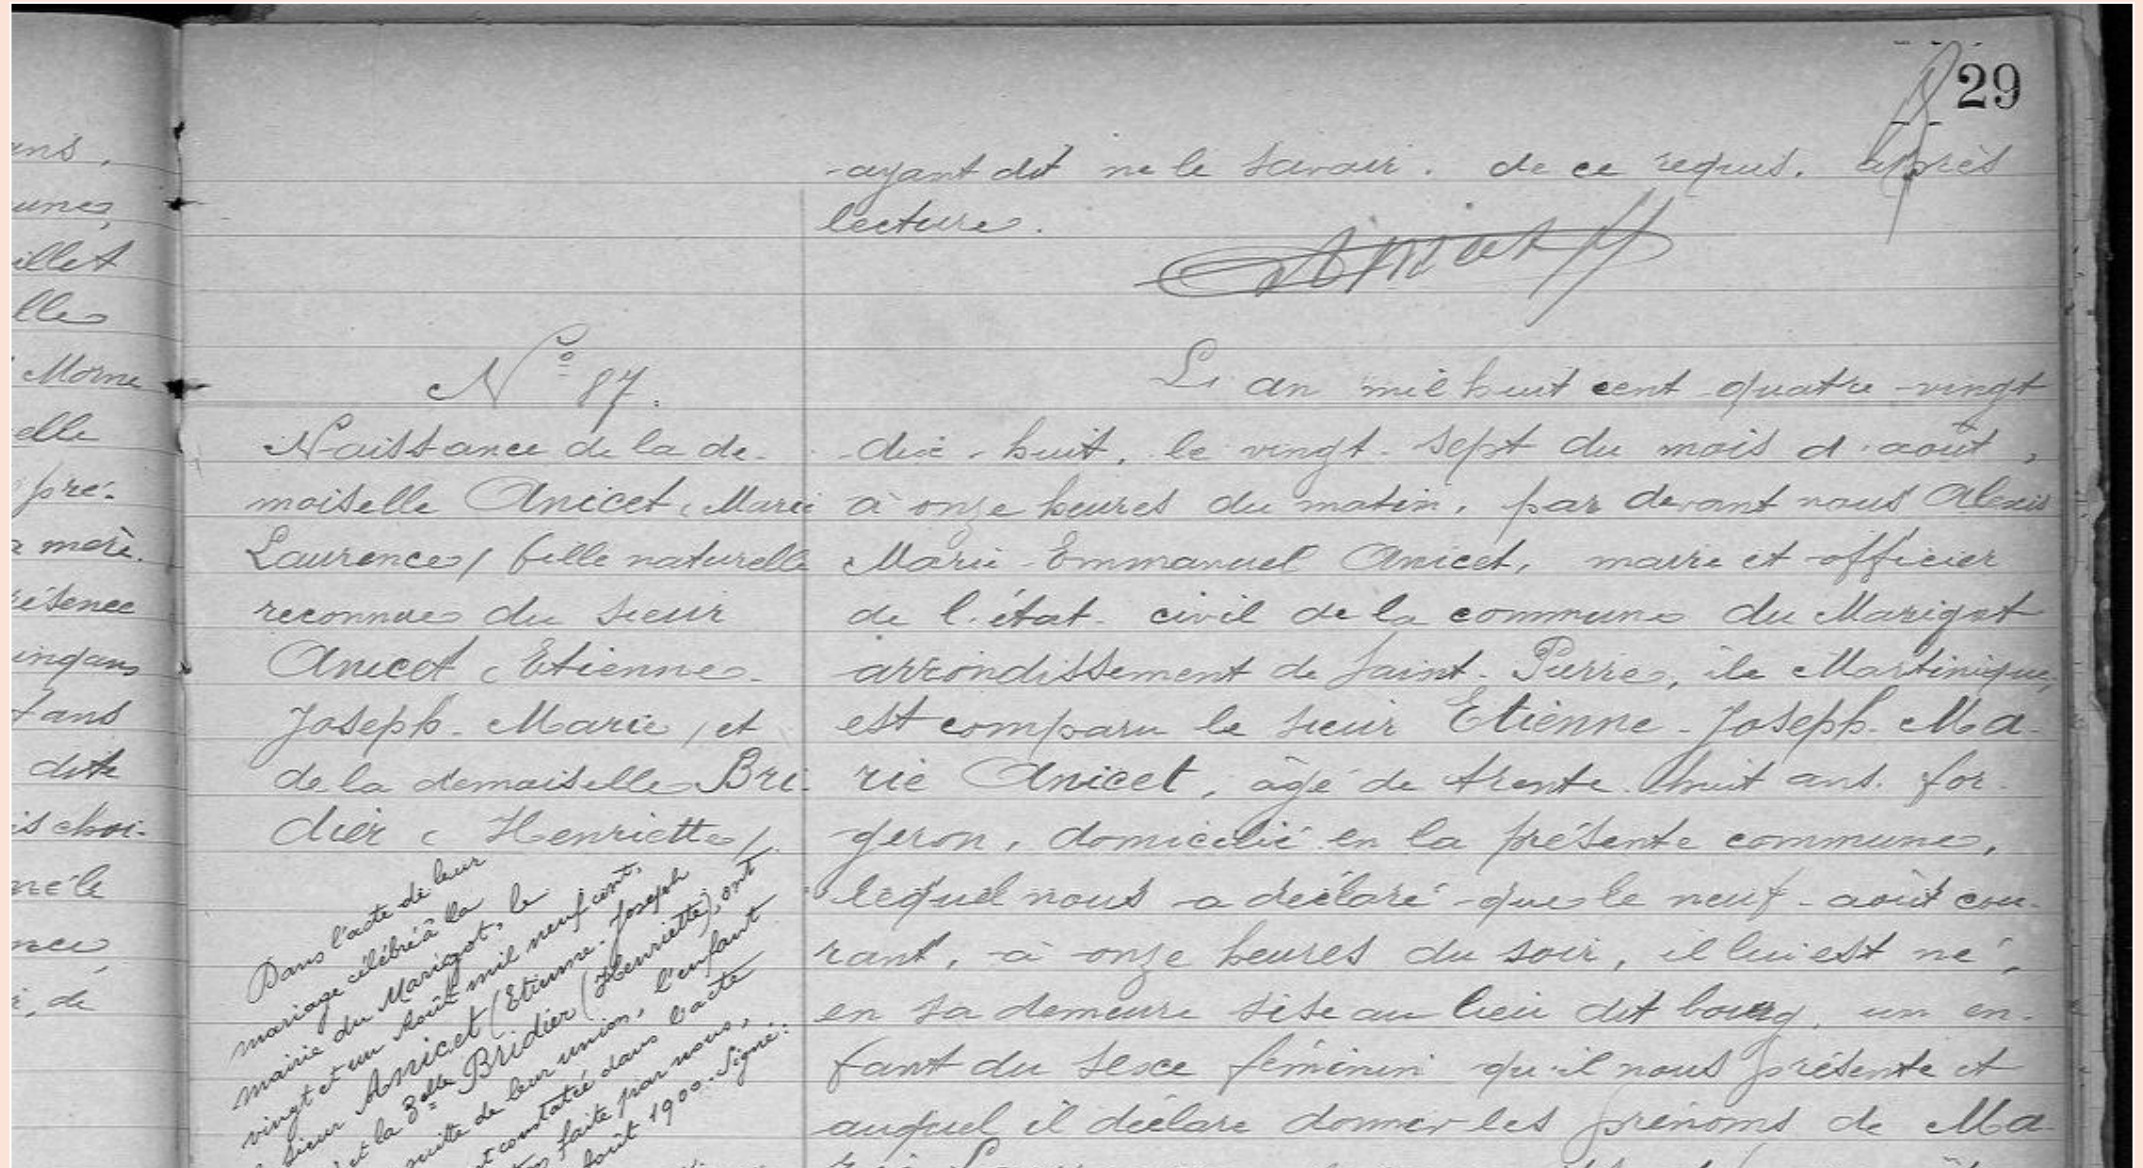 29
ans.
unes
illet
lle
Morne
elle
pré-
mère.
résence
vingt ans
ans
dite
is choi-
né le
nce
, de
-ayant dit ne le savoir. de ce requis. après
lecture.
Anicet
N° 87.
Naissance de la de-
moiselle Anicet (Marie
Laurence) fille naturelle
reconnue du sieur
Anicet (Etienne-
Joseph-Marie) et
de la demoiselle Bri-
dier (Henriette).
Dans l'acte de leur
mariage célébré à la
mairie du Marigot, le
vingt et un Août mil neuf cent,
sieur Anicet (Etienne-Joseph
et la Delle Bridier (Henriette), ont
suite de leur union, l'enfant
et constatée dans l'acte
faite par nous,
août 1900. Signé:
L'an mil huit cent quatre-vingt
dix-huit, le vingt-sept du mois d'août,
à onze heures du matin, par devant nous Alexis
Marie-Emmanuel Anicet, maire et officier
de l'état-civil de la commune du Marigot
arrondissement de Saint-Pierre, île Martinique,
est comparu le sieur Etienne-Joseph-Ma-
rie Anicet, âgé de trente-huit ans, for-
geron, domicilié en la présente commune,
lequel nous a déclaré que le neuf août cou-
rant, à onze heures du soir, il lui est né,
en sa demeure sise au lieu dit bourg, un en-
fant du sexe féminin qu'il nous présente et
auquel il déclare donner les prénoms de Ma-